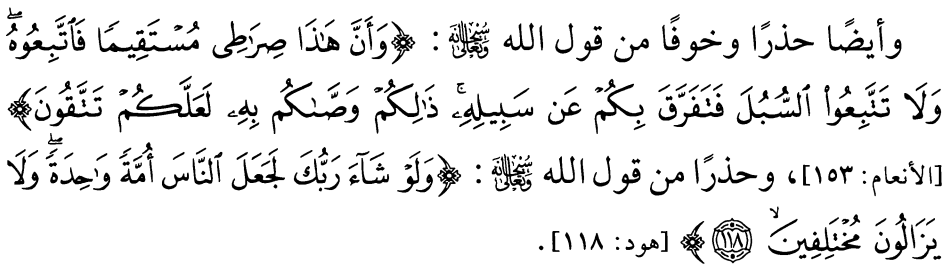 وأيضًا حذرًا وخوفًا من قول الله سُبْحَانَهُ وَتَعَالَى: ﴿وَأَنَّ هَٰذَا صِرَٰطِى مُسْتَقِيمًا فَٱتَّبِعُوهُ ۖ
وَلَا تَتَّبِعُوا۟ ٱلسُّبُلَ فَتَفَرَّقَ بِكُمْ عَن سَبِيلِهِۦ ۚ ذَٰلِكُمْ وَصَّىٰكُم بِهِۦ لَعَلَّكُمْ تَتَّقُونَ﴾
[الأنعام: ١٥٣]، وحذرًا من قول الله سُبْحَانَهُ وَتَعَالَى: ﴿وَلَوْ شَآءَ رَبُّكَ لَجَعَلَ ٱلنَّاسَ أُمَّةً وَٰحِدَةً ۖ وَلَا
يَزَالُونَ مُخْتَلِفِينَ ۙ ١١٨﴾ [هود: ١١٨].